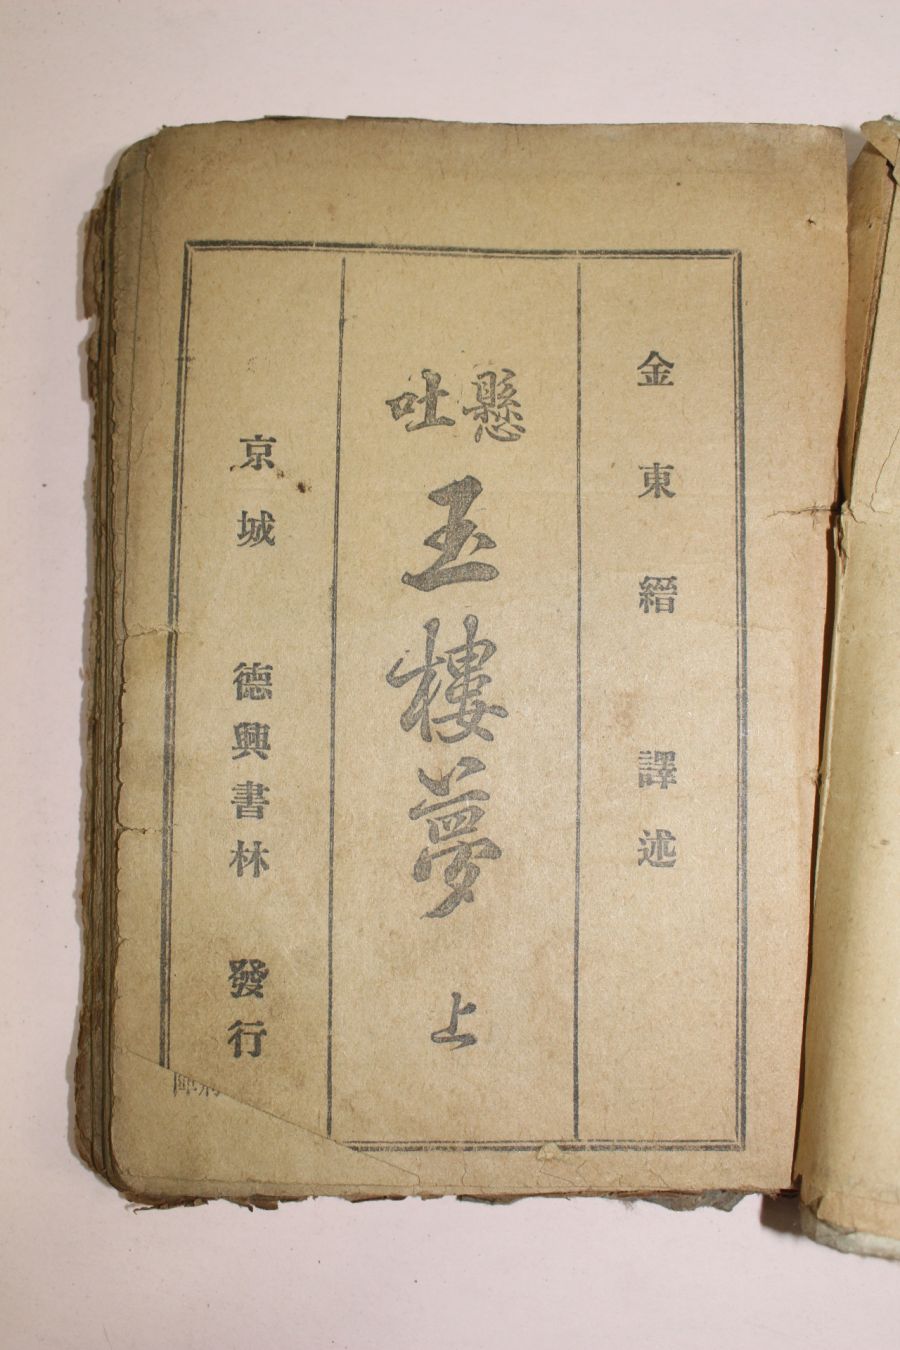 金東縉 譯述
懸吐
玉樓夢 上
京城 德興書林 發行